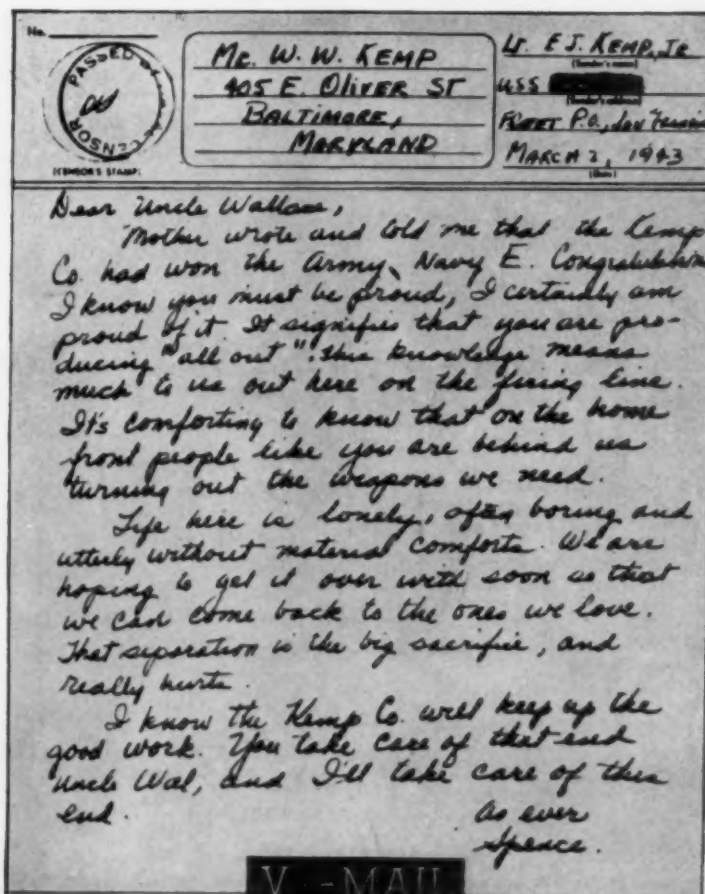 No.
PASSED BY NAVAL CENSOR
(CENSOR'S STAMP)
Mr. W. W. KEMP
405 E. OLIVER ST
BALTIMORE,
MARYLAND
Lt. E J. KEMP, Jr
(Sender's name)
USS
(Sender's address)
FLEET P.O., San Francisco
MARCH 2, 1943
(Date)
Dear Uncle Wallace,
Mother wrote and told me that the Kemp
Co. had won the Army, Navy E. Congratulations
I know you must be proud, I certainly am
proud of it. It signifies that you are pro-
ducing "all out". This knowledge means
much to us out here on the firing line.
It's comforting to know that on the home
front people like you are behind us
turning out the weapons we need.
Life here is lonely, often boring and
utterly without material comforts. We are
hoping to get it over with soon so that
we can come back to the ones we love.
That separation is the big sacrifice, and
really hurts.
I know the Kemp Co. will keep up the
good work. You take care of that end
Uncle Wal, and I'll take care of this
end.
As ever
Spence.
V--MAIL